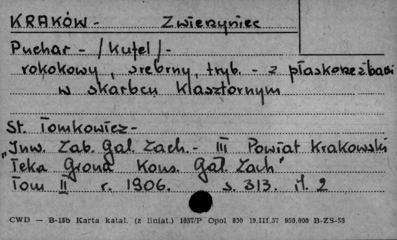 KRAKÓW - Zwierzyniec
Puchar - /Kufel/ -
rokokowy, srebrny, tryb. - z płaskorzeźbami
w skarbcu klasztornym
St. Tomkowicz -
"Inw. Zab. Gal. Zach. - III Powiat Krakowski
Teka Grona Kons. Gal. Zach"
Tom II r. 1906. s. 313. il. 2
CWD — B-13b Karta katal. (z liniat.) 1037/P Opol 830 19.III.57 950.000 B-ZS-53